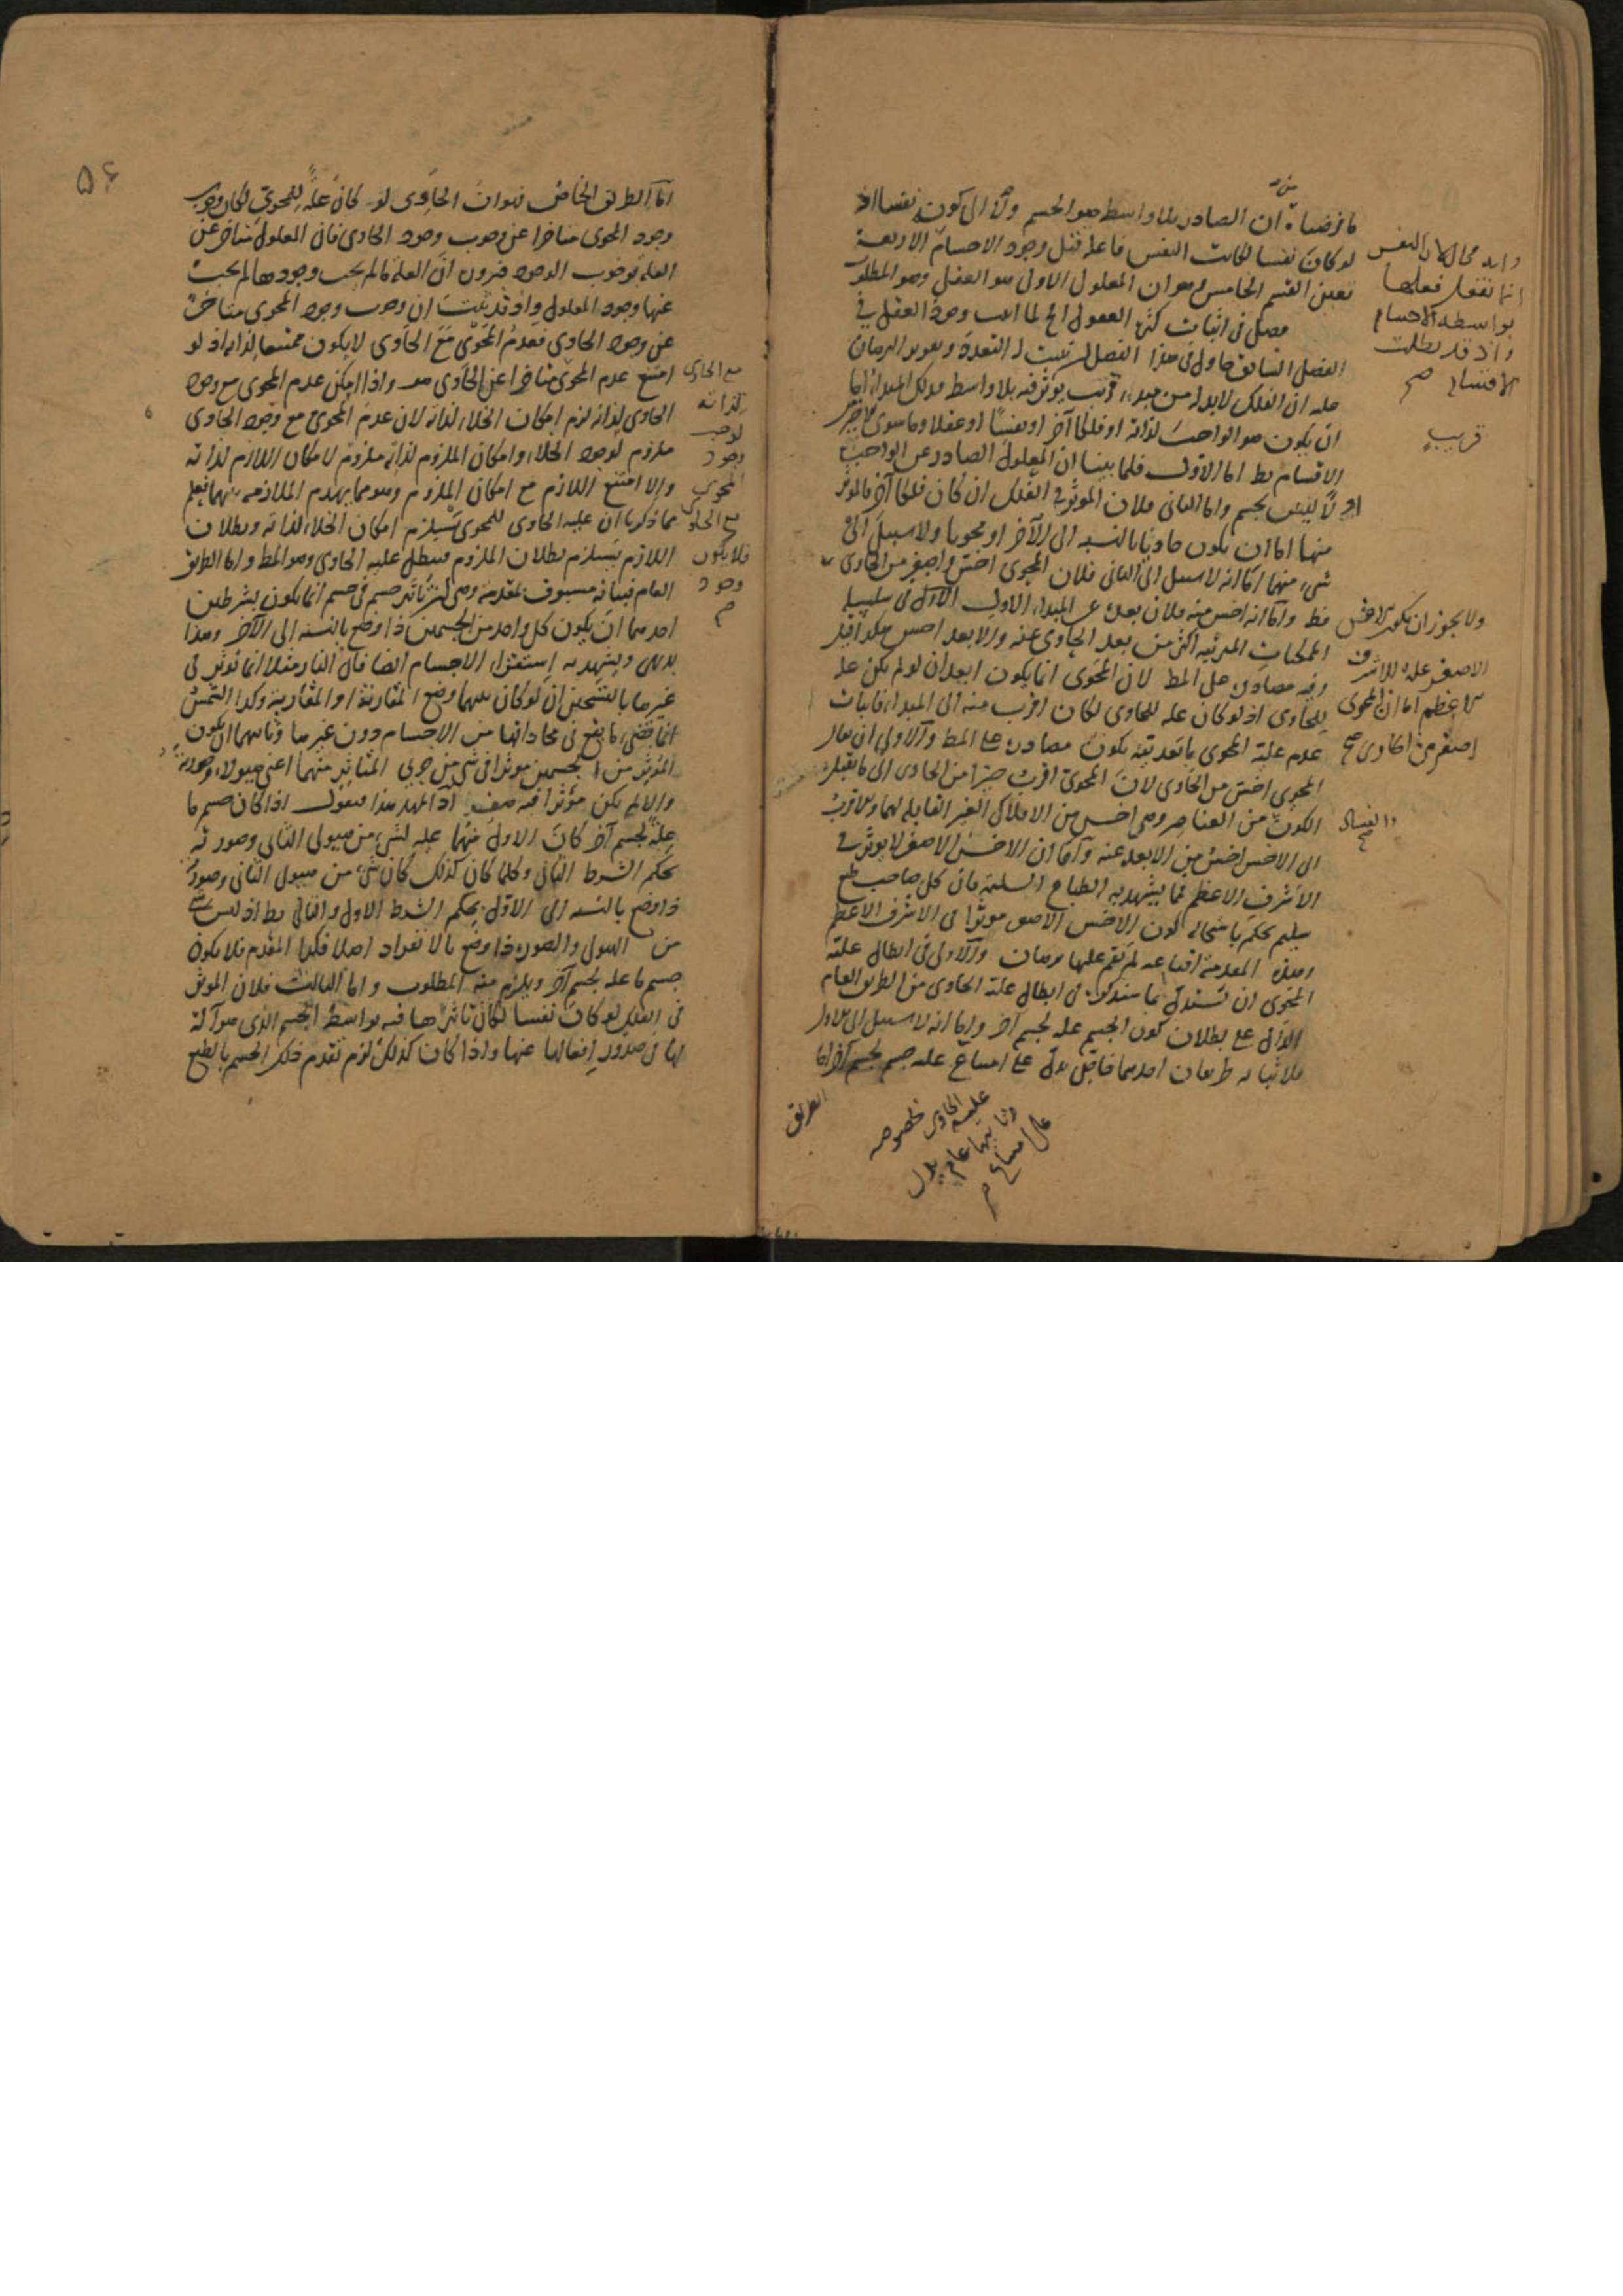 ما فرضناه ان الصادر بلا واسطة هو الجسم ولا الى كونه نفسا اذ
لو كان نفسا لكانت النفس فاعلة قبل وجود الاجسام الاربعة
تعين القسم الخامس وهو ان المعلول الاول هو العقل وهو المطلوب
فصل في اثبات كثرة العقول الخ لما اثبت وجود العقل في
الفصل السابق حاول في هذا الفصل ان يثبت له التعدد وتقرير البرهان
عليه ان الفلك لا بد له من مبدء قريب يؤثر فيه بلا واسطة وذلك المبدء اما
ان يكون هو الواجب لذاته او فلكا آخر او نفسا او عقلا وما سوى الاخير
الاقسام بط اما الاول فلما بينا ان المعلول الصادر عن الواجب
اولا ليس بجسم واما الثاني فلان المؤثر في الفلك ان كان فلكا آخر فالمؤثر
منهما اما ان يكون حاويا بالنسبة الى الآخر او محويا ولا سبيل الى
شيء منهما اما انه لا سبيل الى الثاني فلان المحوي اخس واصغر من الحاوي
فظ واما انه اخس منه فلان بعده عن المبداء الاول
الممكنات المرتبة اكثر من بعد الحاوي عنه والابعد اخس
وفيه مصادرة على المط لان المحوى انما يكون ابعد ان لو لم يكن علة
للحاوي اذ لو كان علة للحاوي لكان اقرب منه الى المبدا، فاثبات
عدم علية المحوى بابعديته يكون مصادرة على المط والاولى ان يقال
المحوي اخس من الحاوي لان المحوي اقرب حيزا من الحاوى الى ما يقبل
الكون من العناصر وهى اخس من الافلاك الغير القابلة لهما والاقرب
الى الاخس اخس من الابعد عنه واما ان الاخس الاصغر لا يؤثر في
الاشرف الاعظم مما يشهد به الطباع السليمة فان كل صاحب طبع
سليم يحكم باستحالة كون الاخس الاصغر مؤثرا في الاشرف الاعظم
وهذه المقدمة اقناعية لم يقم عليها برهان والاولى في ابطال علية
المحوى ان يستدل بما سنذكره في ابطال علية الحاوى من الطريق العام
الدال على بطلان كون الجسم علة لجسم آخر واما انه لا سبيل الى الاول
فلاثباته طريقان احدهما خاص يدل على امتناع علية جسم لجسم آخر اما
وانه محال لان النفس
انما تفعل فعلها
بواسطة الاجسام
واذ قد بطلت
الاقسام صح
قريب
ولا يجوز ان يكون الاخس
الاصغر علة للاشرف
الاعظم اما ان المحوى
اصغر من الحاوى صح
والفساد
صح
علية الحاوي بخصوصه
وثانيهما عام يدل
على امتناع
الطريق
۵۶
اما الطريق الخاص فهو ان الحاوى لو كان علة للمحوي لكان وجوب
وجود المحوى متاخرا عن وجوب وجود الحاوى فان المعلول متاخر عن
العلة بوجوب الوجود ضرورة ان العلة ما لم يجب وجودها لم يجب
عنها وجود المعلول واذ قد ثبت ان وجوب وجود المحوى متاخر
عن وجود الحاوي فعدم المحوي مع الحاوى لا يكون ممتنعا لذاته اذ لو
امتنع عدم المحوى متاخرا عن الحاوى هف واذا امكن عدم المحوى مع وجود
الحاوى لذاته لزم امكان الخلاء لذاته لان عدم المحوى مع وجود الحاوى
ملزوم لوجود الخلاء وامكان الملزوم لذاته ملزوم لامكان اللازم لذاته
والا امتنع اللازم مع امكان الملزوم وهو مما يهدم الملازمة بينهما فعلم
مما ذكرنا ان علية الحاوى للمحوى يستلزم امكان الخلاء لذاته وبطلان
اللازم يستلزم بطلان الملزوم فبطل علية الحاوى وهو المط واما الطريق
العام فبيانه مسبوق بمقدمة وهى ان تاثير جسم في جسم انما يكون بشرطين
احدهما ان يكون كل واحد من الجسمين ذا وضع بالنسبة الى الآخر وهذا
بديهى ويشهد به استقراء الاجسام ايضا فان النار مثلا انما تؤثر في
غيرها بالتسخين ان لو كان بينهما وضع المقارنة او المقاربة وكذا الشمس
انما تضئ ما يقع في محاذاتها من الاجسام دون غيرها وثانيهما ان يكون
المؤثر من الجسمين مؤثرا في شئ من جزئي المتاثر منهما اعنى هيولاه وصورته
والا لم يكن مؤثرا فيه هف اذا تمهد هذا فنقول اذا كان جسم ما
علة لجسم آخر كان الاول منهما علة لشئ من هيولى الثاني وصورته
بحكم الشرط الثاني وكلما كان كذلك كان شئ من هيولى الثاني وصورته
ذا وضع بالنسبة الى الاول بحكم الشرط الاول والتالي بط اذ ليس شئ
من الهيولى والصورة ذا وضع بالانفراد اصلا فكذا المقدم فلا يكون
جسم ما علة لجسم آخر ويلزم منه المطلوب واما الثالث فلان المؤثر
في الفلك لو كان نفسا لكان تاثيرها فيه بواسطة الجسم الذى هو آلة
لها في صدور افعالها عنها واذا كان كذلك لزم تقدم ذلك الجسم بالطبع
مع الحاوى
لذاته
لوجب
وجود
المحوى
مع الحاوى
فلا يكون
وجود